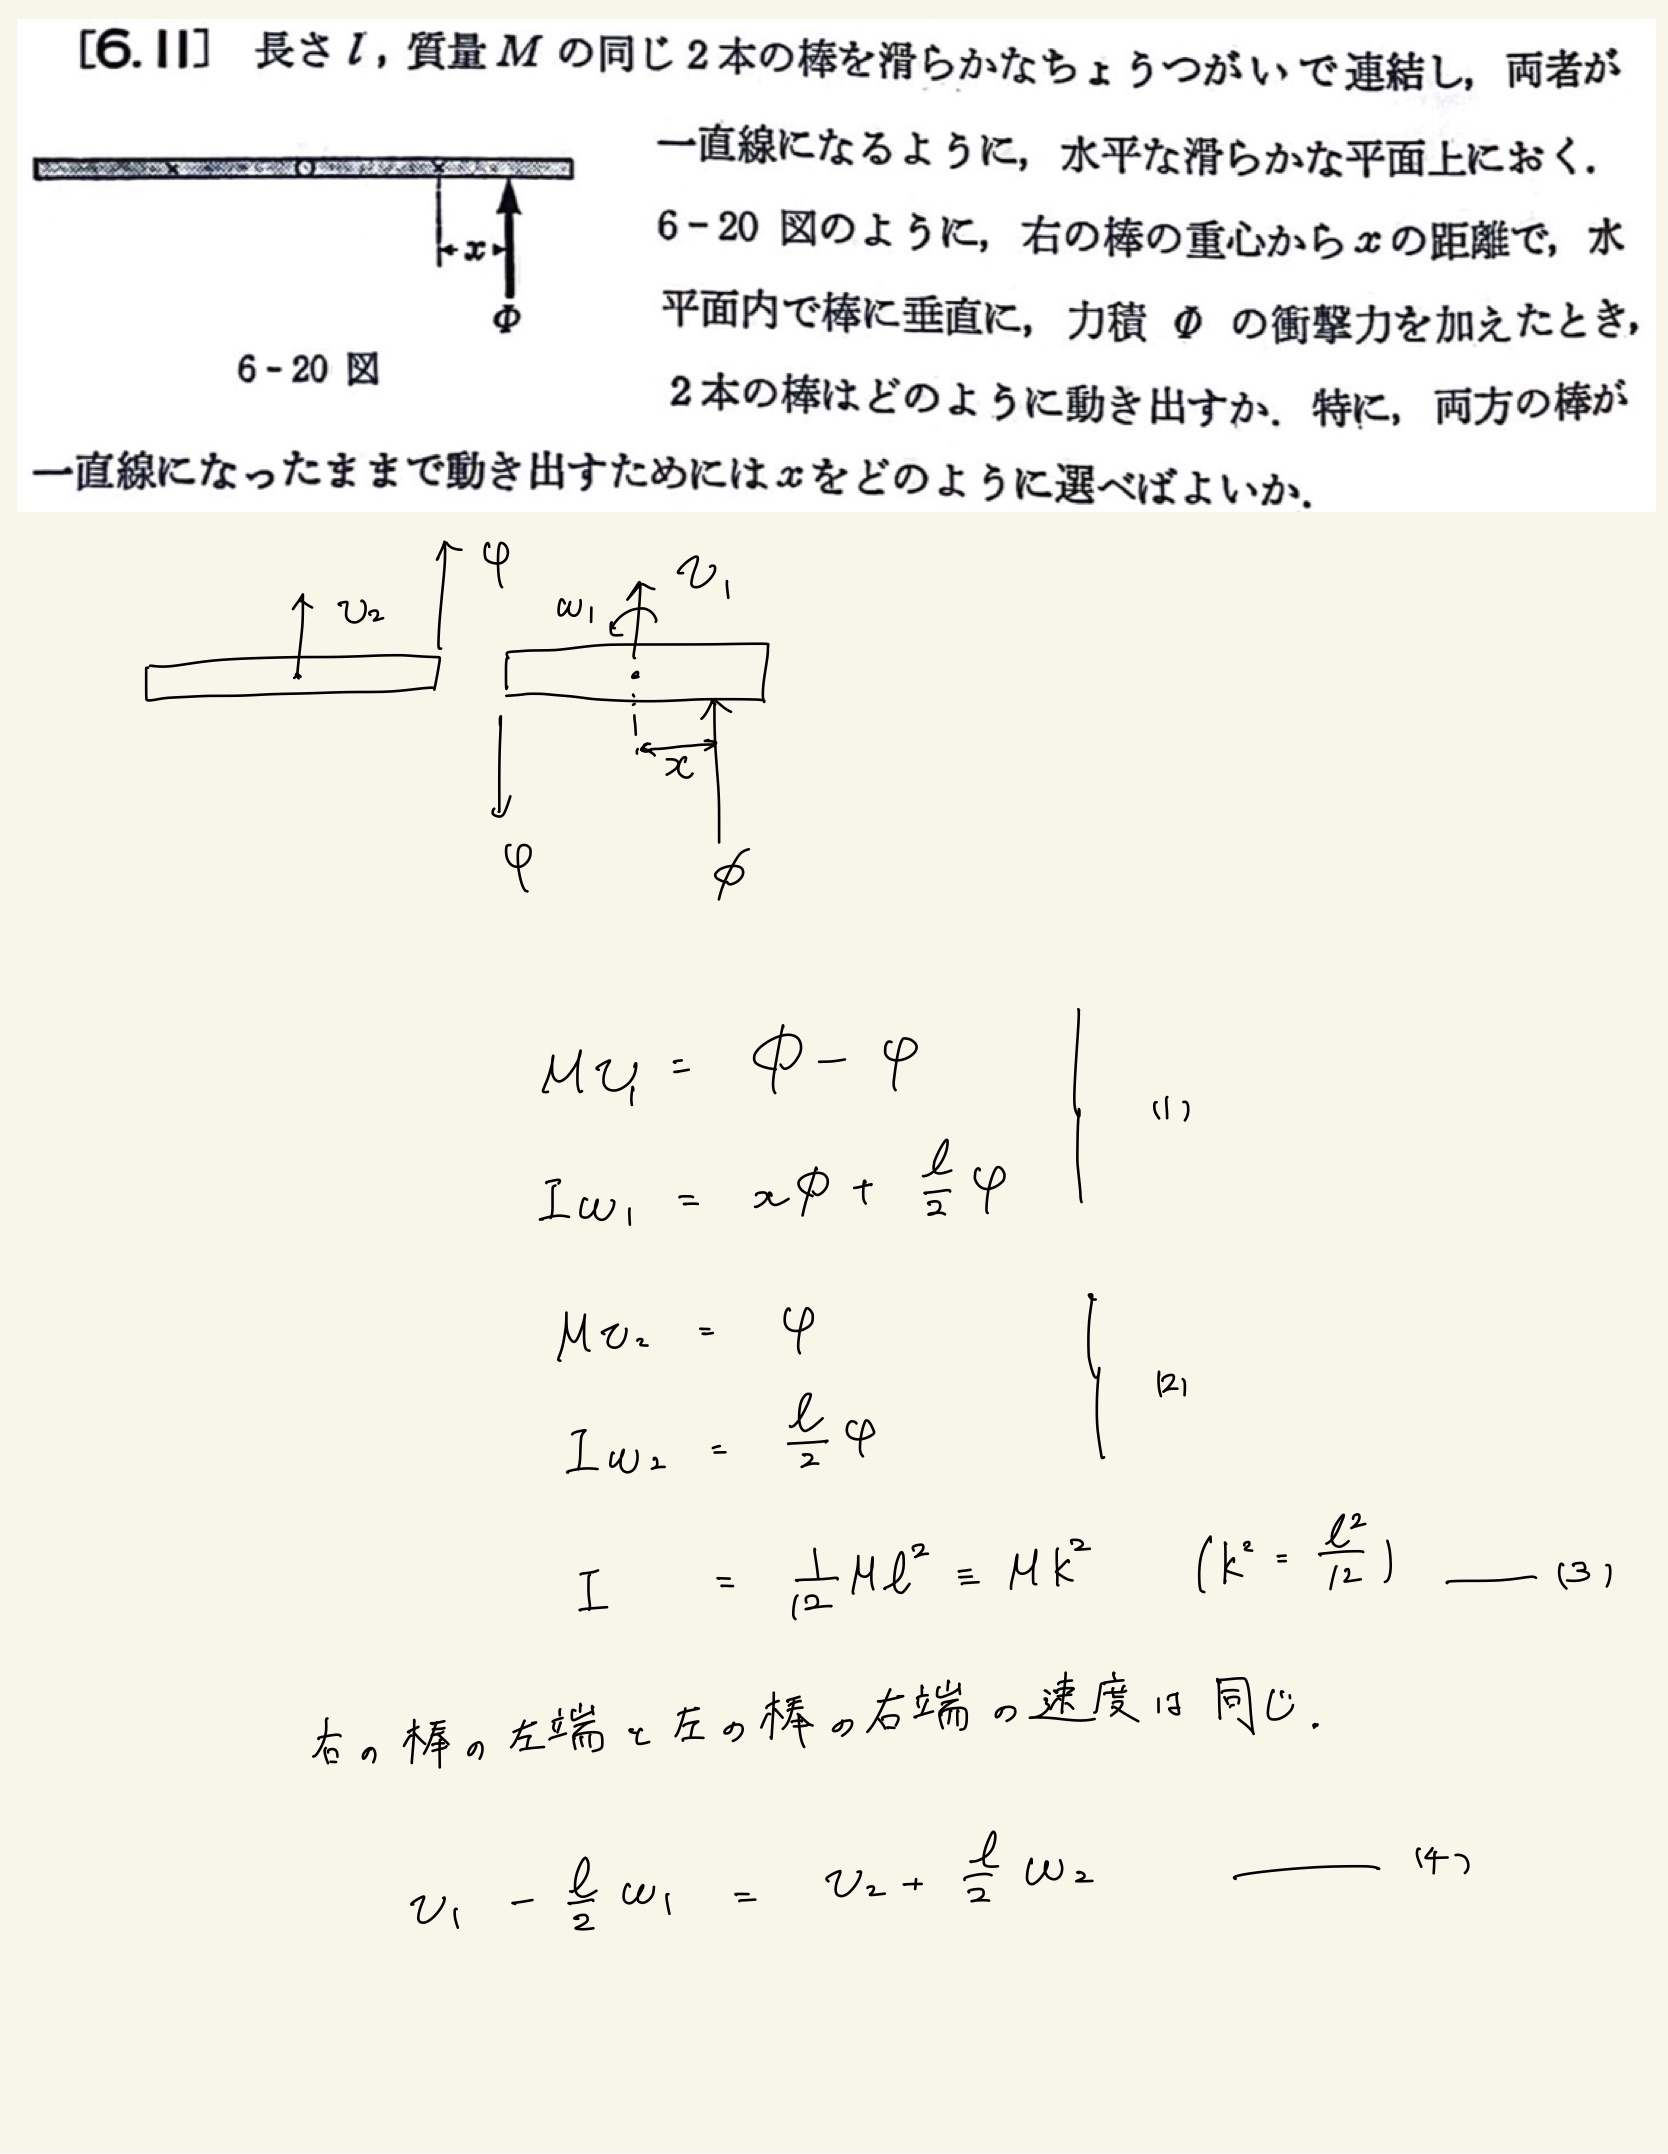 [6.11] 長さ l, 質量 M の同じ2本の棒を滑らかなちょうつがいで連結し, 両者が
一直線になるように, 水平な滑らかな平面上におく.
6-20 図のように, 右の棒の重心から x の距離で, 水
平面内で棒に垂直に, 力積 Φ の衝撃力を加えたとき,
2本の棒はどのように動き出すか. 特に, 両方の棒が
一直線になったままで動き出すためには x をどのように選べばよいか.
x
Φ
6-20 図
φ
v₂
ω₁
v₁
x
φ
Φ
Mv₁ = Φ - φ
(1)
Iω₁ = xΦ + l/2 φ
Mv₂ = φ
(2)
Iω₂ = l/2 φ
I = 1/12 Ml² ≡ Mk² (k² = l²/12) —— (3)
右の棒の左端と左の棒の右端の速度は同じ.
v₁ - l/2 ω₁ = v₂ + l/2 ω₂ —— (4)